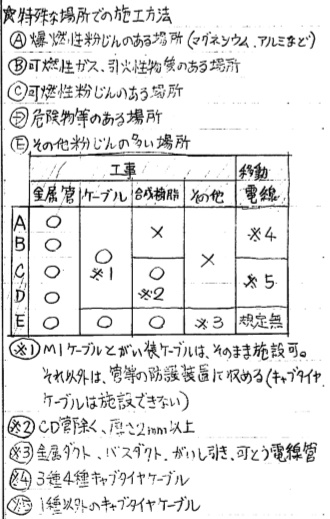 ☆特殊な場所での施工方法
Ⓐ爆燃性粉じんのある場所(マグネシウム、アルミなど)
Ⓑ可燃性ガス、引火性物質のある場所
Ⓒ可燃性粉じんのある場所
Ⓓ危険物等のある場所
Ⓔその他粉じんの多い場所
工事 移動電線
金属管 ケーブル 合成樹脂 その他
A ○ ○※1 × × ※4
B ○
C ○ ○※2 ※5
D ○
E ○ ○ ○ ※3 規定無
※1 MIケーブルとがい装ケーブルは、そのまま施設可。
それ以外は、管等の防護装置に収める(キャブタイヤ
ケーブルは施設できない)
※2 CD管除く、厚さ2mm以上
※3 金属ダクト、バスダクト、がいし引き、可とう電線管
※4 3種4種キャブタイヤケーブル
※5 1種以外のキャブタイヤケーブル